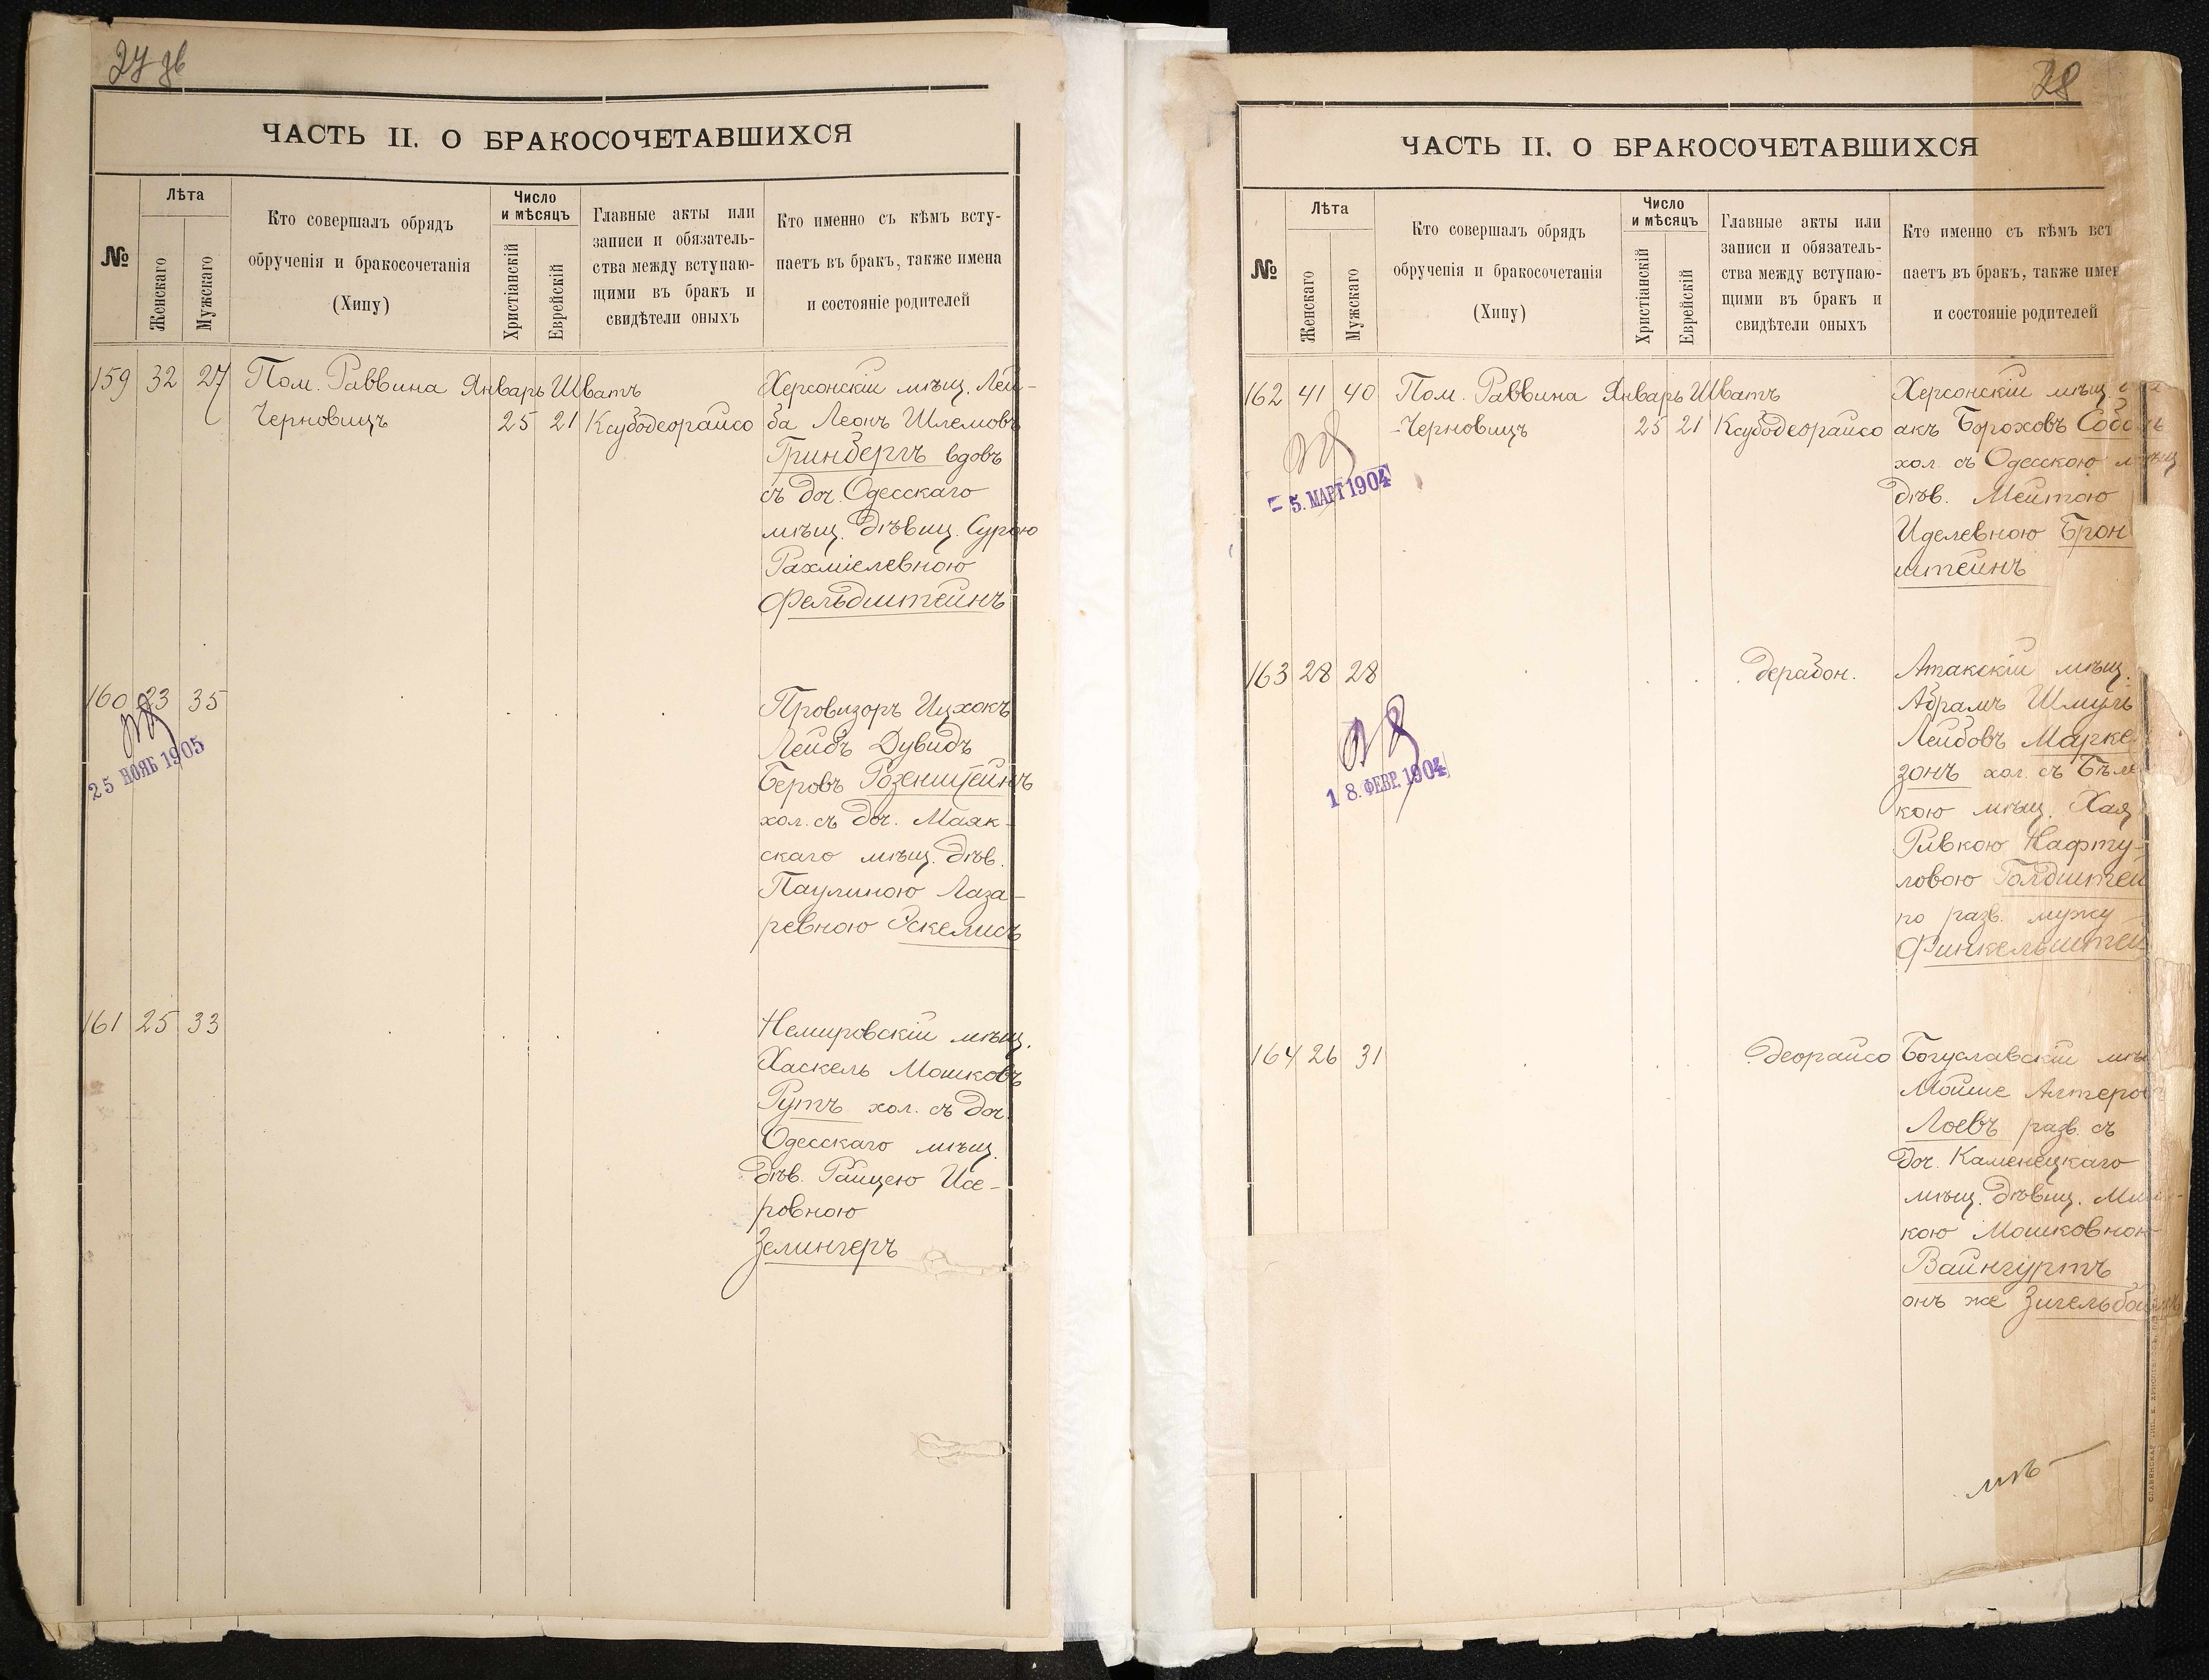 27 об
ЧАСТЬ II. О БРАКОСОЧЕТАВШИХСЯ
№
Лѣта
Женскаго
Мужскаго
Кто совершалъ обрядъ
обрученія и бракосочетанія
(Хипу)
Число
и мѣсяцъ
Христіанскій
Еврейскій
Главные акты или
записи и обязатель-
ства между вступаю-
щими въ бракъ и
свидѣтели оныхъ
Кто именно съ кѣмъ всту-
паетъ въ бракъ, также имена
и состояніе родителей
159 32 27 Пом. Раввина Январь Шватъ Херсонскій мѣщ. Лей-
Черновицъ 25 21 Ксубодеорайсо ба Леонъ Шлемовъ
Гринбергъ вдовъ
съ доч. Одесскаго
мѣщ. дѣвиц. Сурою
Рахміелевною
Фельдштейнъ
160 23 35 Провизоръ Ицхокъ
25 НОЯБ 1905
Лейбъ Дувидъ
Беровъ Розенштейнъ
хол. съ доч. Маяк-
скаго мѣщ. дѣв.
Паулиною Лаза-
ревною Ускелисъ
161 25 33 Немировскій мѣщ.
Хаскель Мошковъ
Рутъ хол. съ доч.
Одесскаго мѣщ.
дѣв. Райцею Исе-
ровною
Зелингеръ
28
ЧАСТЬ II. О БРАКОСОЧЕТАВШИХСЯ
№
Лѣта
Женскаго
Мужскаго
Кто совершалъ обрядъ
обрученія и бракосочетанія
(Хипу)
Число
и мѣсяцъ
Христіанскій
Еврейскій
Главные акты или
записи и обязатель-
ства между вступаю-
щими въ бракъ и
свидѣтели оныхъ
Кто именно съ кѣмъ вст
паетъ въ бракъ, также имен
и состояніе родителей
162 41 40 Пом. Раввина Январь Шватъ Херсонскій мѣщ.
Черновицъ 25 21 Ксубодеорайсо акъ Бороховъ Соболь
5. МАРТ 1904
хол. съ Одесскою мѣщ
дѣв. Мейтою
Иделевною Брон
штейнъ
163 28 28 дерабон. Атакскій мѣщ.
18. ФЕВР. 1904
Абрамъ Шмуль
Лейбовъ Марке
зонъ хол. съ Бѣле
кою мѣщ. Хая
Ривкою Нафту-
ловою Голдштей
по разв. мужу
Финкельштей
164 26 31 деорайсо Богуславскій мѣщ
Мойше Алтеровъ
Лоевъ разв. съ
доч. Каменецкаго
мѣщ. дѣвиц.
кою Мошковною
Вайнгуртъ
онъ же Зигельбоймъ